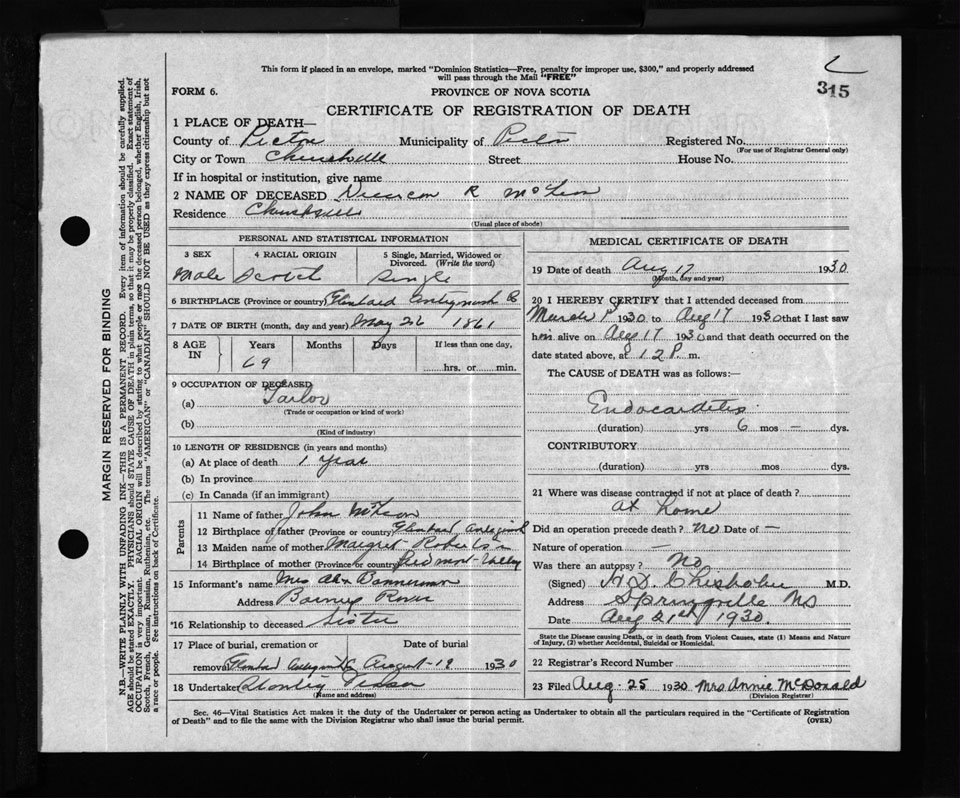 This form if placed in an envelope, marked "Dominion Statistics—Free, penalty for improper use, $300," and properly addressed
will pass through the Mail "FREE"
315
FORM 6.
PROVINCE OF NOVA SCOTIA
CERTIFICATE OF REGISTRATION OF DEATH
1 PLACE OF DEATH—
County of Pictou Municipality of Pictou Registered No.
(For use of Registrar General only)
City or Town Churchville Street House No.
If in hospital or institution, give name
2 NAME OF DECEASED Duncan R McLean
Residence Churchville
(Usual place of abode)
PERSONAL AND STATISTICAL INFORMATION
3 SEX 4 RACIAL ORIGIN 5 Single, Married, Widowed or Divorced. (Write the word)
Male Scotch Single
6 BIRTHPLACE (Province or country) Glenbard Antigonish Co
7 DATE OF BIRTH (month, day and year) May 26 1861
8 AGE IN Years Months Days If less than one day,
69 hrs. or min.
9 OCCUPATION OF DECEASED
(a) Tailor
(Trade or occupation or kind of work)
(b)
(Kind of industry)
10 LENGTH OF RESIDENCE (in years and months)
(a) At place of death 1 year
(b) In province
(c) In Canada (if an immigrant)
Parents
11 Name of father John McLean
12 Birthplace of father (Province or country) Glenbard Antigonish
13 Maiden name of mother Margret Robertson
14 Birthplace of mother (Province or country) Piedmont Valley
15 Informant's name Mrs Alex Bannerman
Address Barneys River
*16 Relationship to deceased Sister
17 Place of burial, cremation or Date of burial
removal Glenbard Antigonish Co August 19 1930
18 Undertaker
(Name and address)
MEDICAL CERTIFICATE OF DEATH
19 Date of death Aug 17 1930
(Month, day and year)
20 I HEREBY CERTIFY that I attended deceased from
March 1st 1930 to Aug 17 1930 that I last saw
him alive on Aug 17 1930 and that death occurred on the
date stated above, at 12 P. m.
The CAUSE of DEATH was as follows:—
Endocarditis
(duration) yrs 6 mos — dys.
CONTRIBUTORY
(duration) yrs mos dys.
21 Where was disease contracted if not at place of death?
at home
Did an operation precede death? no Date of —
Nature of operation —
Was there an autopsy? No
(Signed) H.D. Chisholm M.D.
Address Springville NS
Date Aug 21st 1930.
State the Disease causing Death, or in death from Violent Causes, state (1) Means and Nature
of Injury, (2) whether Accidental, Suicidal or Homicidal.
22 Registrar's Record Number
23 Filed Aug. 25 1930 Mrs Annie McDonald
(Division Registrar)
Sec. 46—Vital Statistics Act makes it the duty of the Undertaker or person acting as Undertaker to obtain all the particulars required in the "Certificate of Registration
of Death" and to file the same with the Division Registrar who shall issue the burial permit. (OVER)
MARGIN RESERVED FOR BINDING
N.B.—WRITE PLAINLY WITH UNFADING INK—THIS IS A PERMANENT RECORD. Every item of information should be carefully supplied.
AGE should be stated EXACTLY. PHYSICIANS should STATE CAUSE OF DEATH in plain terms, so that it may be properly classified. Exact statement of
OCCUPATION is very important. RACIAL ORIGIN will be described by stating to what people or race the deceased person belonged, whether English, Irish,
Scotch, French, German, Russian, Ruthenian, etc. The terms "AMERICAN" or "CANADIAN" SHOULD NOT BE USED as they express citizenship but not
a race or people. See instructions on back of Certificate.